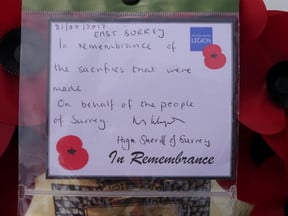 31/07/2017
EAST SURREY
In remembrance of
LEGION
the sacrifies that were
made
On behalf of the people
of Surrey
High Sheriff of Surrey
In Remembrance